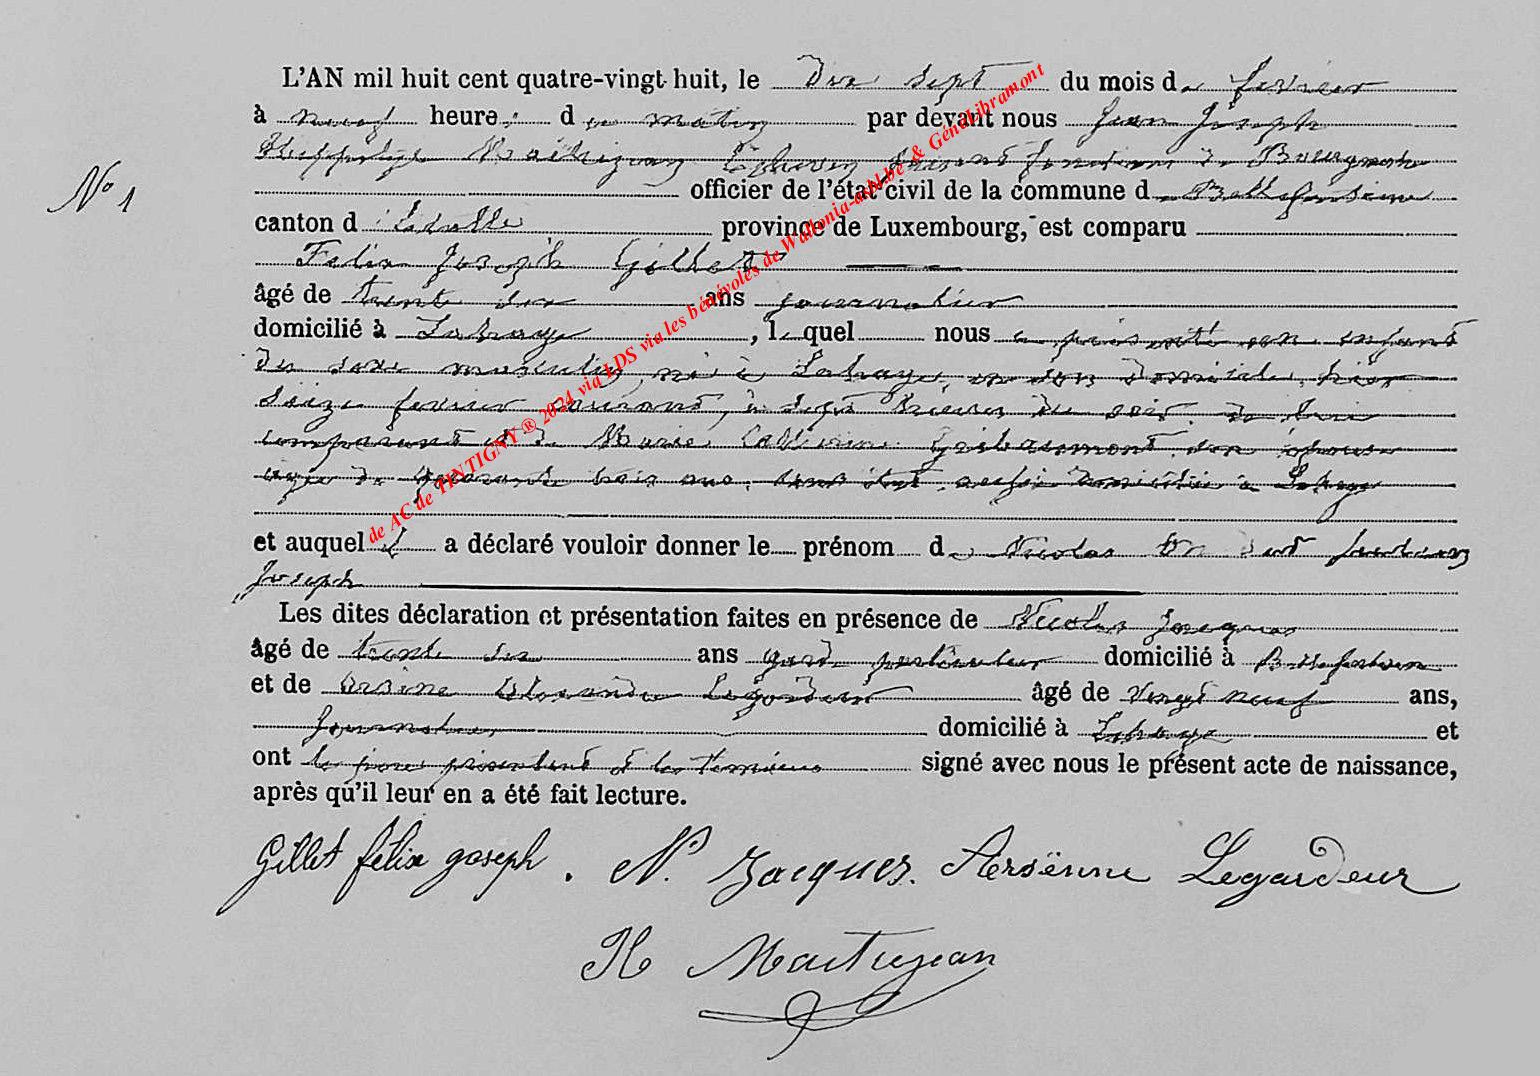 L'AN mil huit cent quatre-vingt-huit, le dix sept du mois de fevrier
à neuf heures du matin par devant nous Jean Joseph
Hippolyte Martigean Echevin faisant fonctions de Bourgmestre
N° 1
officier de l'état civil de la commune de Bellefontaine
canton d' Etalle province de Luxembourg, est comparu
Felix Joseph Gillet
âgé de trente six ans journalier
domicilié à Lahage, lequel nous a présenté un enfant
du sexe masculin, né à Lahage, en son domicile, hier
seize fevrier courant, à sept heures du soir, de lui
comparant et de Marie Catherine son épouse
agée de quarante trois ans, sans état, aussi domiciliée à Lahage
et auquel il a déclaré vouloir donner le prénom de Nicolas
Joseph
Les dites déclaration et présentation faites en présence de Nicolas Jacques
âgé de trente six ans garde particulier domicilié à Bellefontaine
et de Arsène Alexandre Legardeur âgé de vingt neuf ans,
journalier domicilié à Lahage et
ont le père présentant et les témoins signé avec nous le présent acte de naissance,
après qu'il leur en a été fait lecture.
Gillet félix joseph. N. Jacques. Arsënne Legardeur
H Martigean
de AC de TINTIGNY ® 2024 via LDS via les bénévoles de Wallonia-asbl.be & GénéLibramont